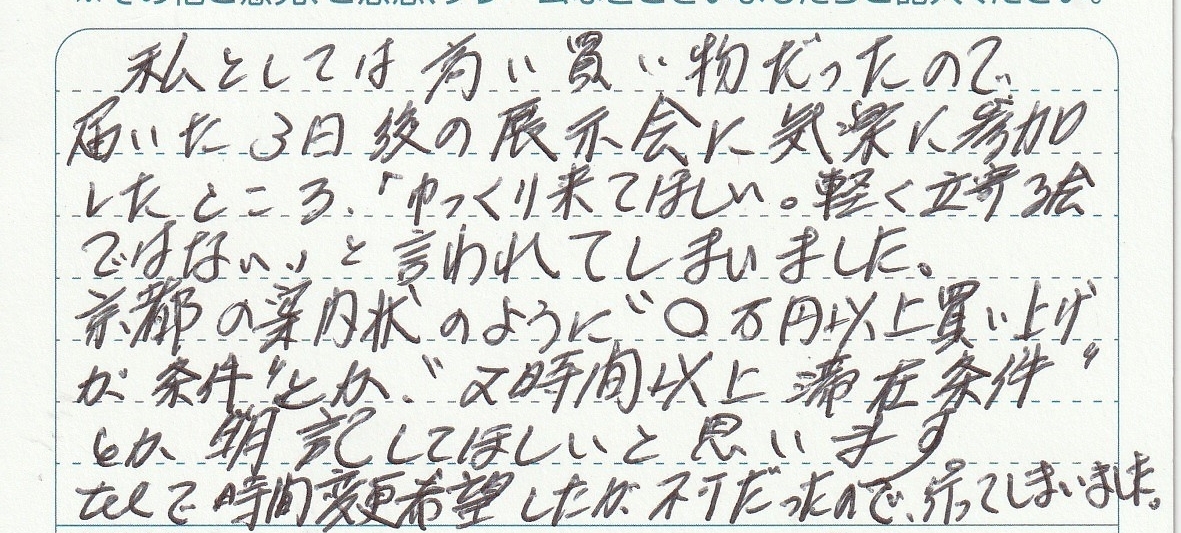 ※その他ご感想、ご意見、クレームなどございましたらご記入ください。
私としては高い買い物だったので
届いた3日後の展示会に気楽に参加
したところ、「ゆっくり来てほしい。軽く立寄る会
ではない」と言われてしまいました。
京都の案内状のように“〇万円以上買い上げ
が条件”とか、“2時間以上滞在条件”
とか明記してほしいと思います
telで時間変更希望したが不可だったので、行ってしまいました。